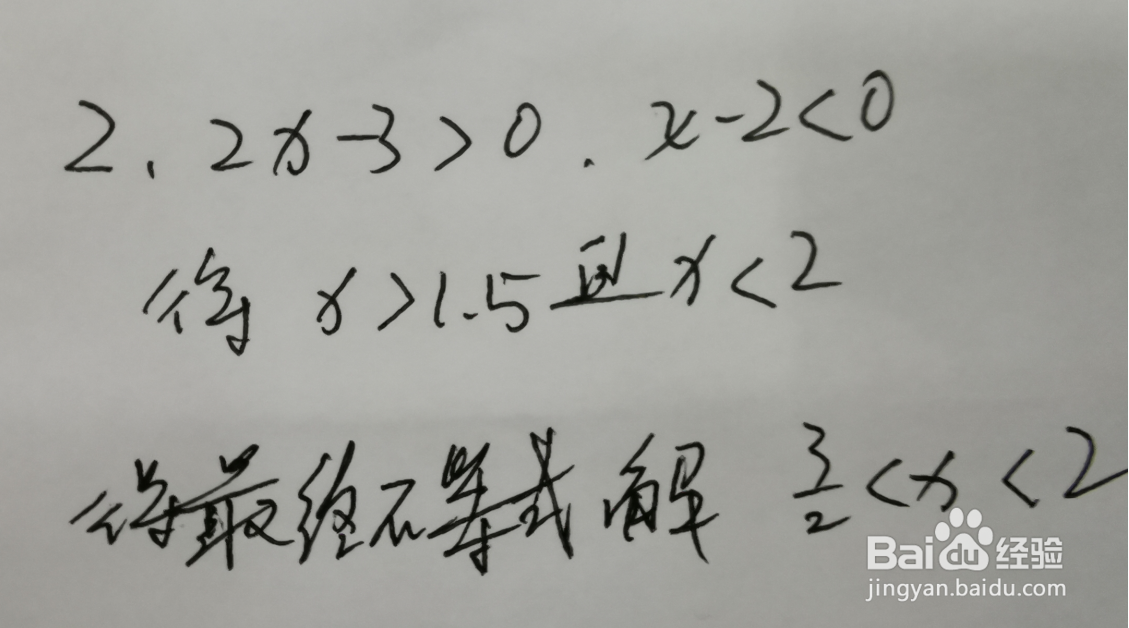 2、2x-3>0. x-2<0
得 x>1.5且x<2
得最终不等式解 3/2<x<2
Baidu经验
jingyan.baidu.com